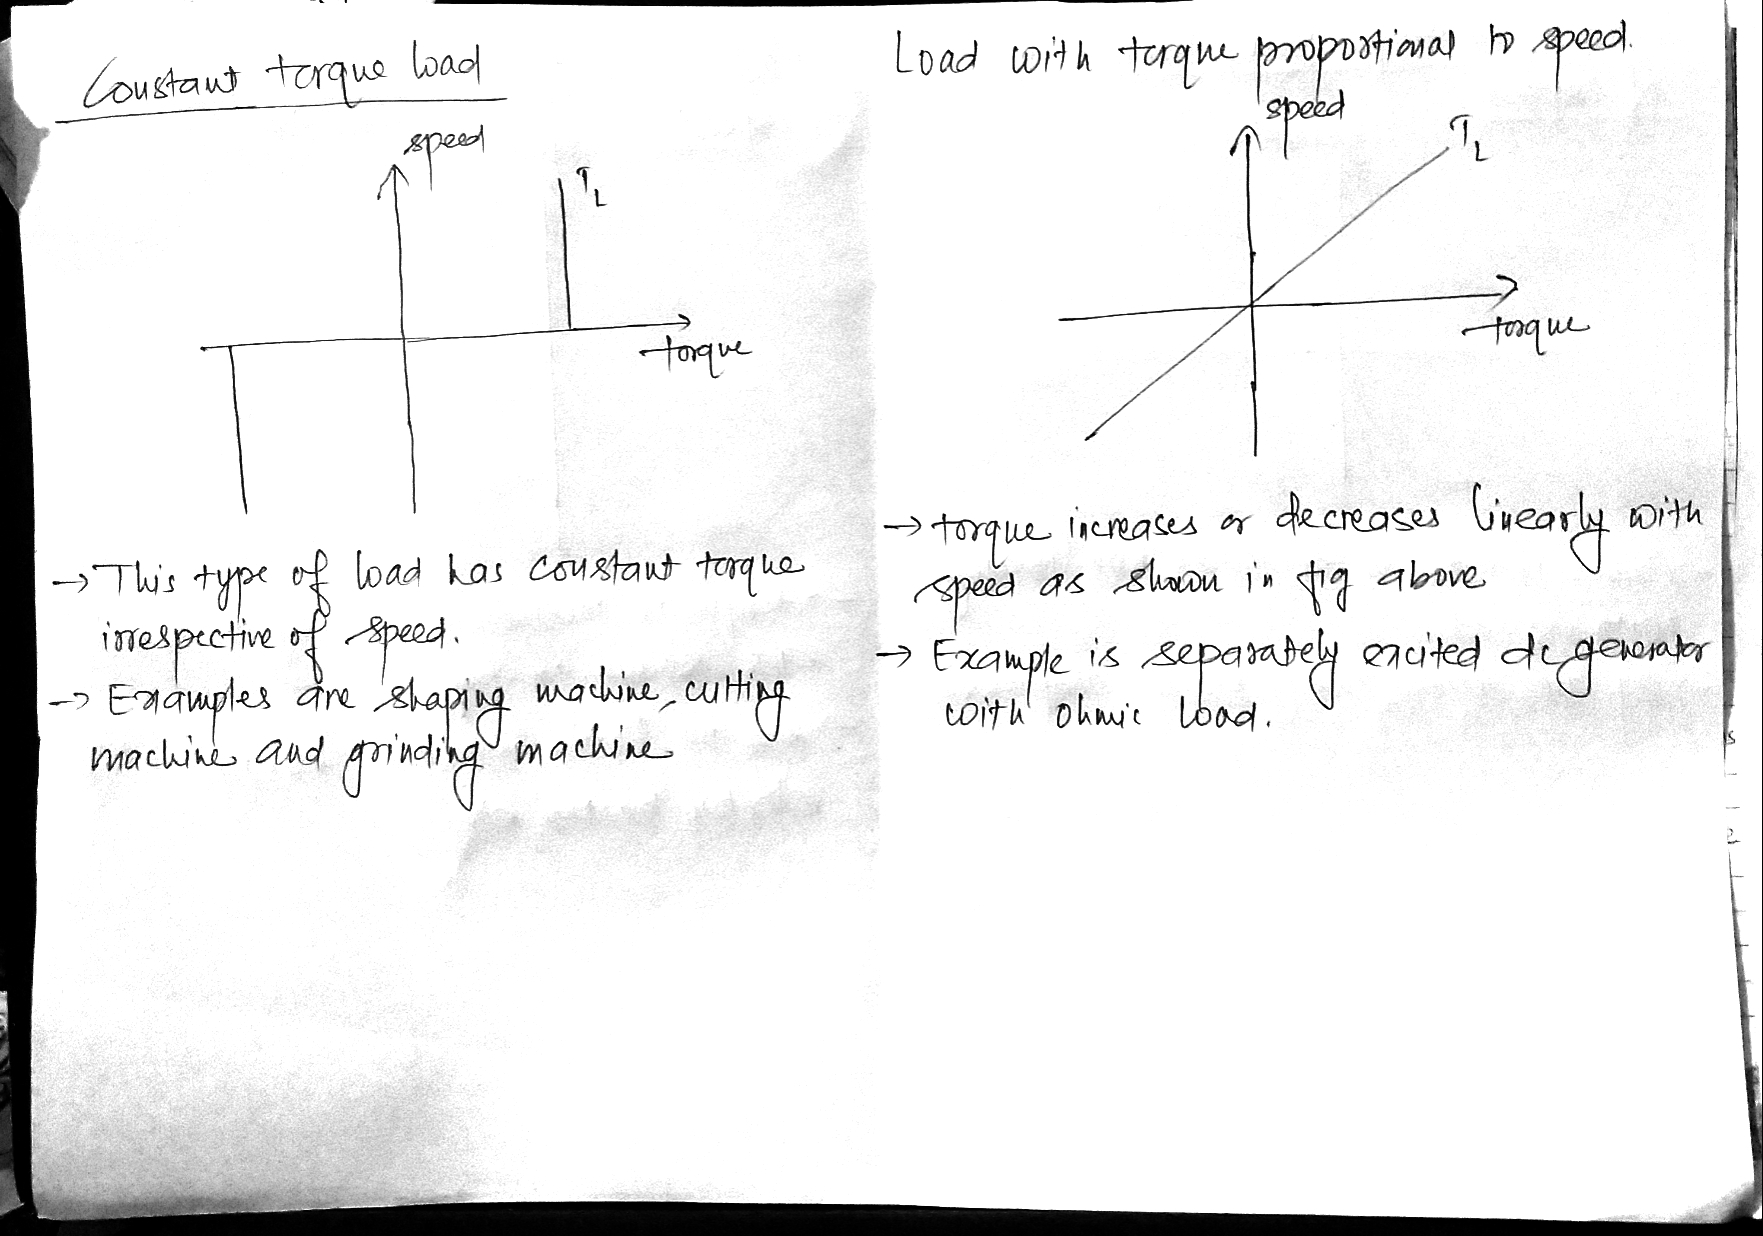 Constant torque load
speed
TL
torque
→ This type of load has constant torque
irrespective of speed.
→ Examples are shaping machine, cutting
machine and grinding machine
Load with torque proportional to speed.
speed
TL
torque
→ torque increases or decreases linearly with
speed as shown in fig above
→ Example is separately excited dc generator
with ohmic load.